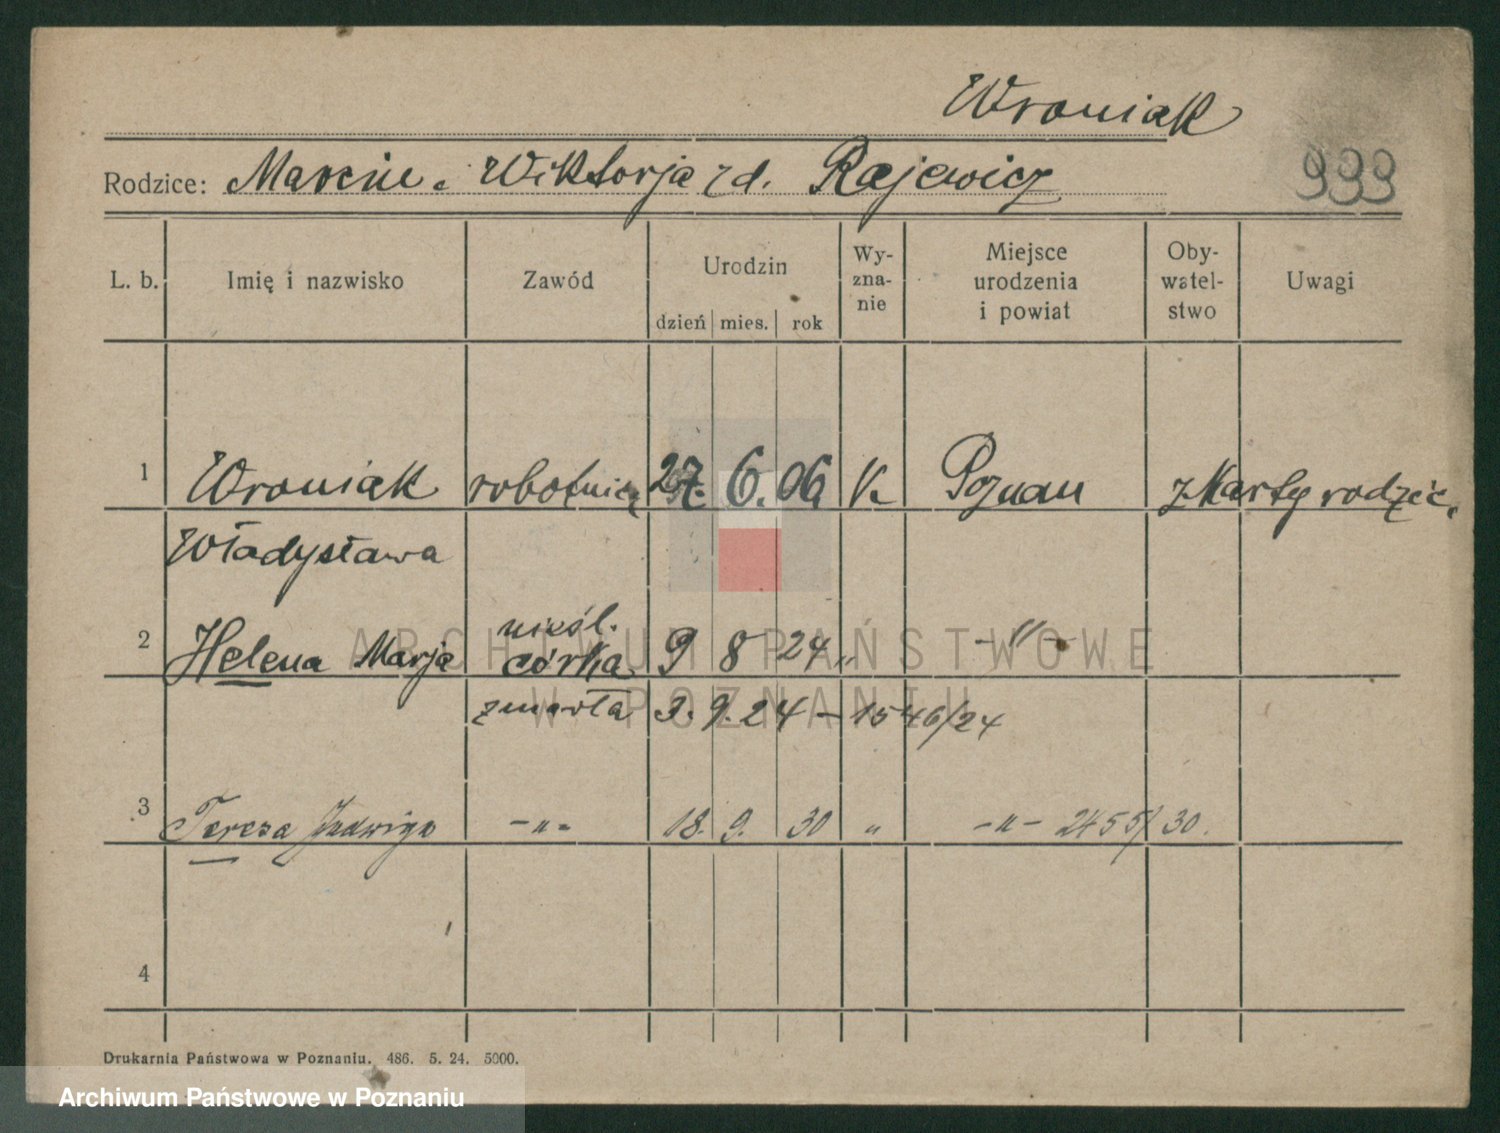 Wroniak
Rodzice: Marcin i Wiktorja zd. Rajewicz
999
L. b. Imię i nazwisko Zawód Urodzin dzień mies. rok Wy-zna-nie Miejsce urodzenia i powiat Oby-watel-stwo Uwagi
1 Wroniak robotnica 27. 6. 06 K. Poznan z Karty rodzic.
Władysława
nieśl.
2 Helena Marja córka 9 8 24 „ -"-
zmarła 3. 9. 24 - 1546/24
3 Teresa Jadwiga -"- 18. 9. 30 " -"- 2455/30.
4
Drukarnia Państwowa w Poznaniu. 486. 5. 24. 5000.
ARCHIWUM PAŃSTWOWE
W POZNANIU
Archiwum Państwowe w Poznaniu